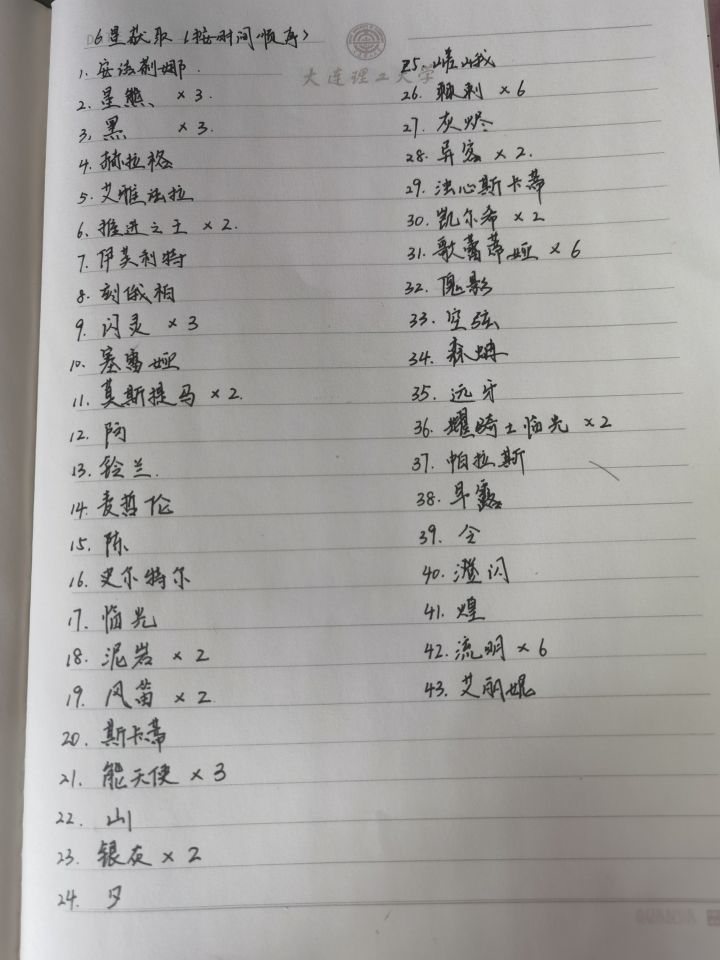 6星获取（按时间顺序）
大连理工大学
1. 安洁莉娜.
2. 星熊、 × 3.
3. 黑 × 3.
4. 赫拉格
5. 艾雅法拉
6. 推进之王 × 2.
7. 伊芙利特
8. 刻俄柏
9. 闪灵 × 3
10. 塞雷娅
11. 莫斯提马 × 2.
12. 阿
13. 铃兰.
14. 麦哲伦
15. 陈
16. 史尔特尔
17. 临光
18. 泥岩 × 2
19. 风笛 × 2
20. 斯卡蒂
21. 能天使 × 3
22. 山
23. 银灰 × 2
24. 夕
25. 嵯峨
26. 棘刺 × 6
27. 灰烬
28. 异客 × 2.
29. 浊心斯卡蒂
30. 凯尔希 × 2
31. 歌蕾蒂娅 × 6
32. 傀影
33. 空弦
34. 森蚺
35. 远牙
36. 耀骑士临光 × 2
37. 帕拉斯
38. 早露
39. 令
40. 澄闪
41. 煌
42. 流明 × 6
43. 艾丽妮